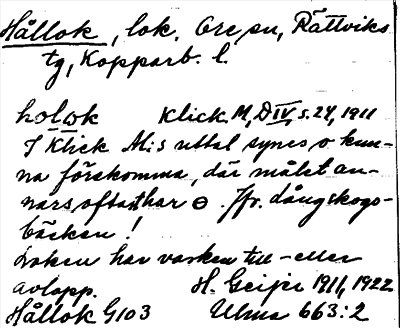 Hållok, lok. Ore sn, Rättviks
tg, Kopparb. l.
holok Klick M, D IV, s. 24, 1911
I Klick M:s uttal synes o kun-
na förekomma, där målet an-
nars oftast har ɵ. Jfr. långskogs-
bäcken!
Loken har varken till- eller
avlopp. H. Geijer 1911, 1922
Hållok G103 Ulma 663:2